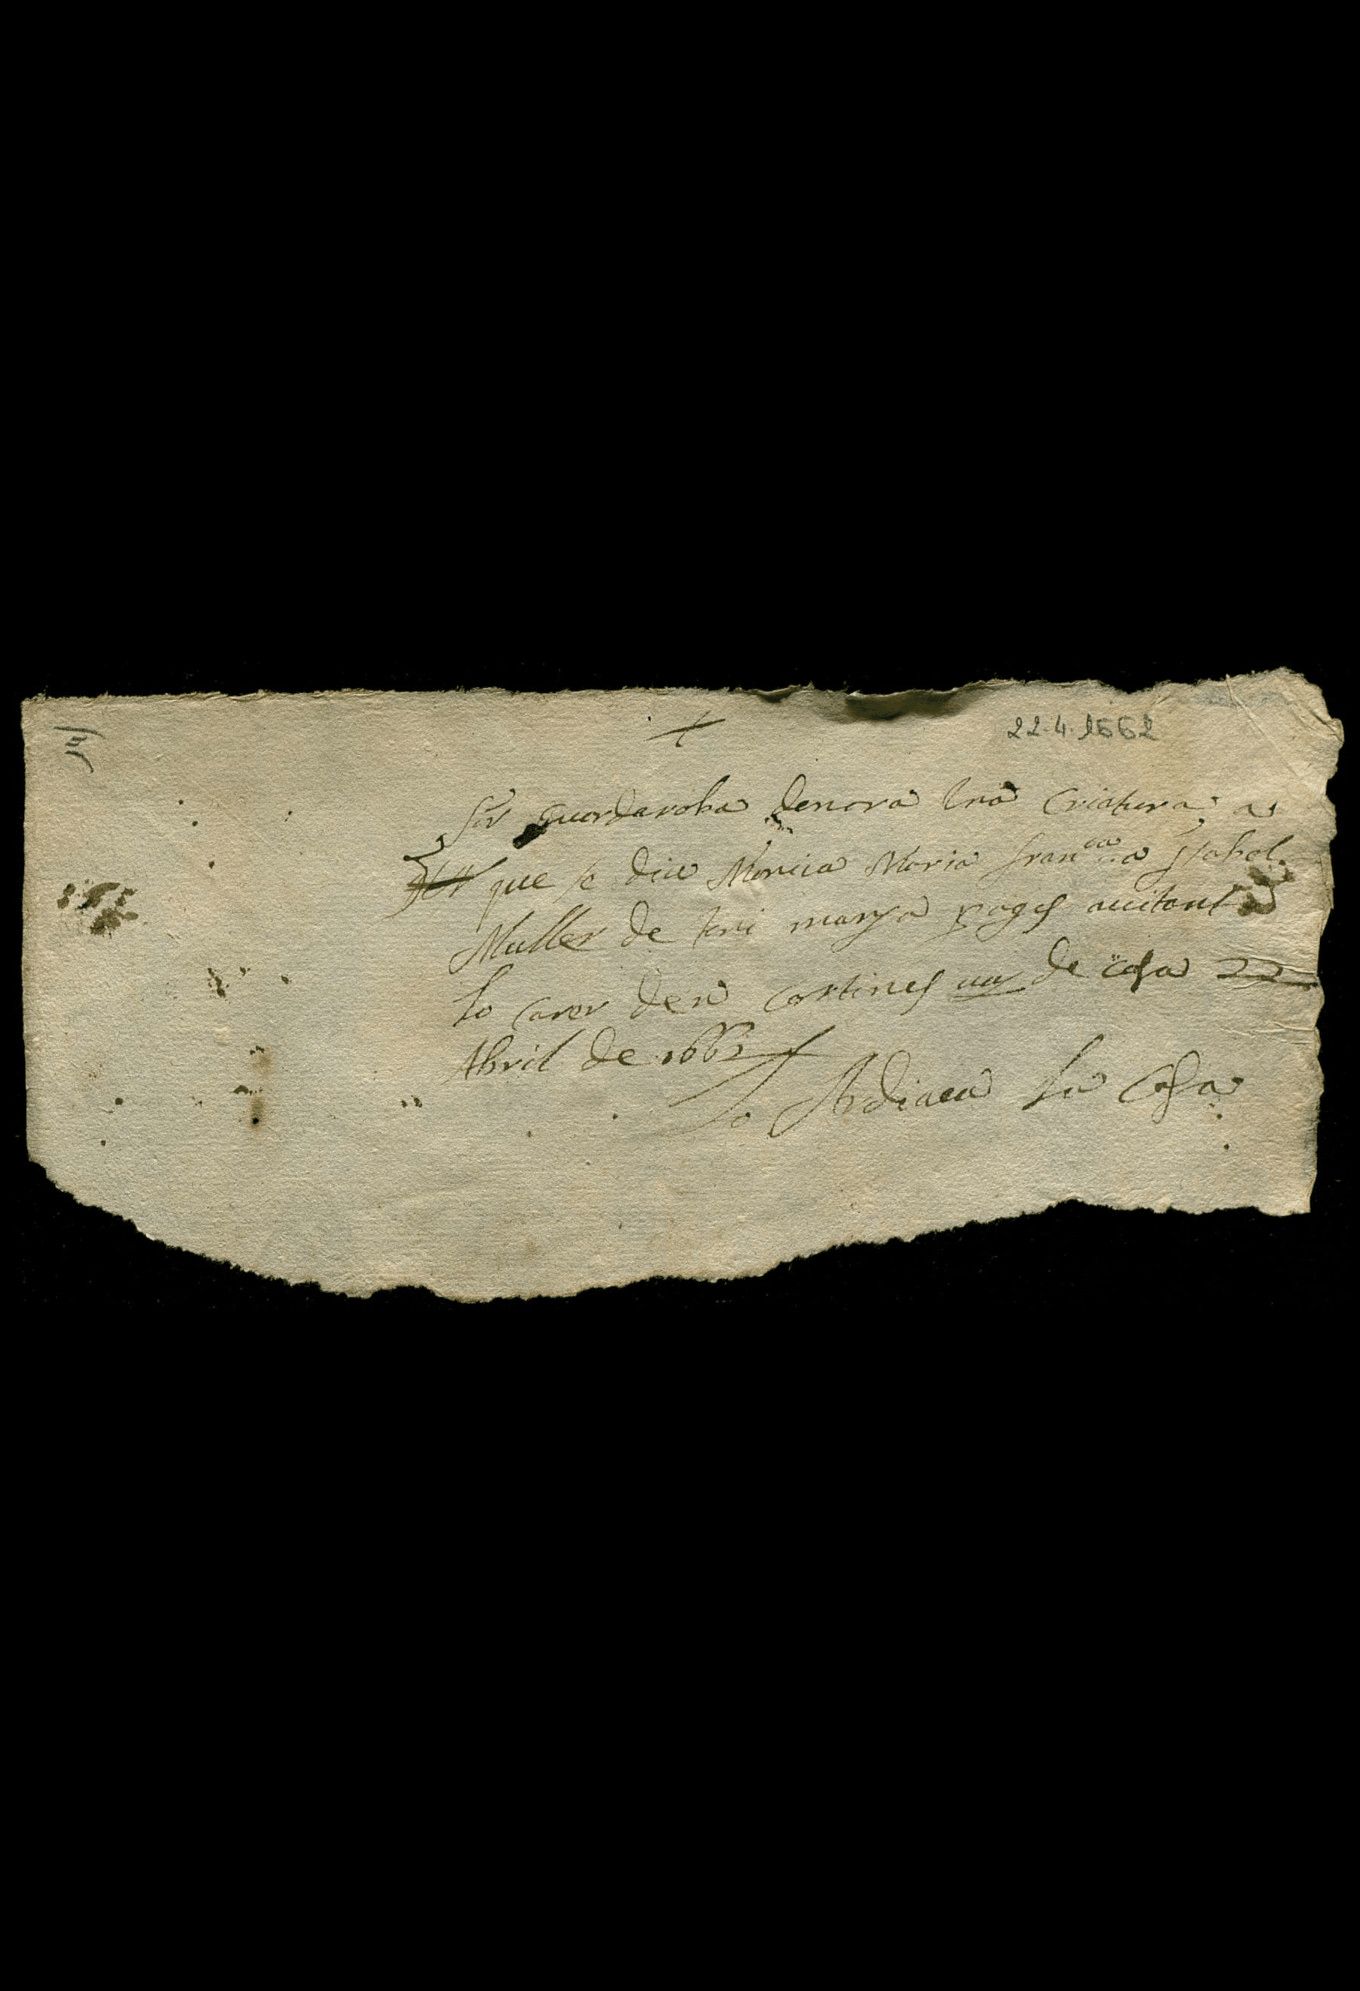 22.4.1662
Sor guardaroba donora una Criatura a
que se diu Monica Maria Franca a Ysabel
Muller de marya pages avitant
Lo carer den cortines de casa 22
Abril de 1662
Lo Ardiaca La Casa